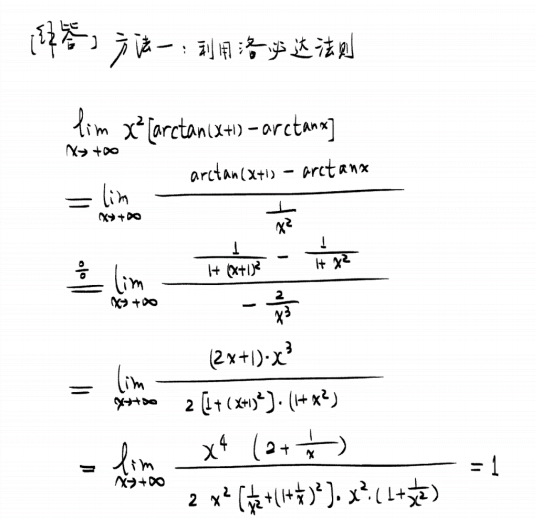 [解答] 方法一:利用洛必达法则
lim x→+∞ x²[arctan(x+1) - arctanx]
= lim x→+∞ (arctan(x+1) - arctanx) / (1/x²)
0/0 = lim x→+∞ (1/(1+(x+1)²) - 1/(1+x²)) / (-2/x³)
= lim x→+∞ ((2x+1)·x³) / (2[1+(x+1)²]·(1+x²))
= lim x→+∞ (x⁴(2+1/x)) / (2x²[1/x²+(1+1/x)²]·x²·(1+1/x²)) = 1